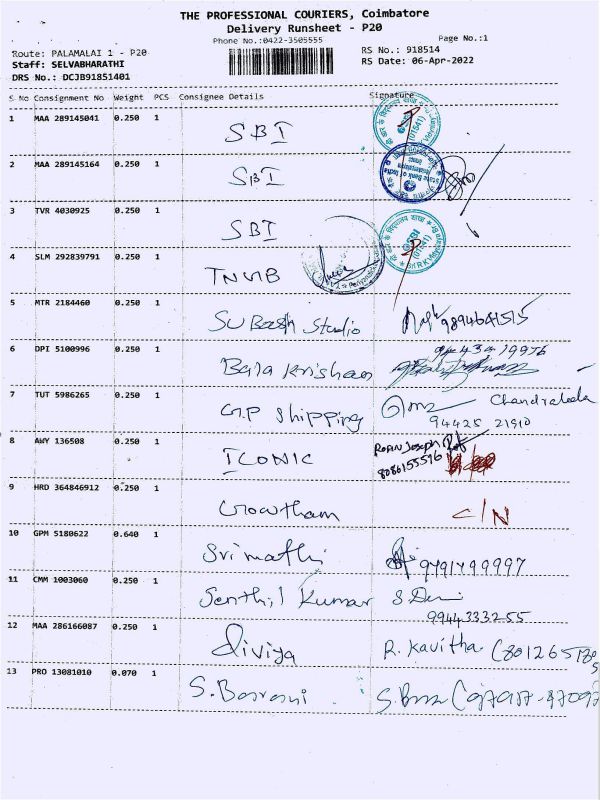 THE PROFESSIONAL COURIERS, Coimbatore
Delivery Runsheet - P20
Phone No.:0422-3505555 Page No.:1
Route: PALAMALAI 1 - P20 RS No.: 918514
Staff: SELVABHARATHI RS Date: 06-Apr-2022
DRS No.: DCJB91851401
S No Consignment No Weight PCS Consignee Details Signature
1 MAA 289145041 0.250 1 SBI
2 MAA 289145164 0.250 1 SBI
3 TVR 4030925 0.250 1 SBI
4 SLM 292839791 0.250 1 TNVIB
5 MTR 2184460 0.250 1 Subash Studio 9894641515
6 DPI 5100996 0.250 1 Bala Krishan
7 TUT 5986265 0.250 1 G.P Shipping Chandraleda
94425 21910
8 AWY 136508 0.250 1 ICONIC Rofin Joseph
8086155516
9 HRD 364846912 0.250 1 Gowtham C/N
10 GPM 5180622 0.640 1 Srimathi 9791799997
11 CMM 1003060 0.250 1 Senthil Kumar S.Devi
9944333255
12 MAA 286166087 0.250 1 Diviya R. Kavitha
13 PRO 13081010 0.070 1 S. Basvani